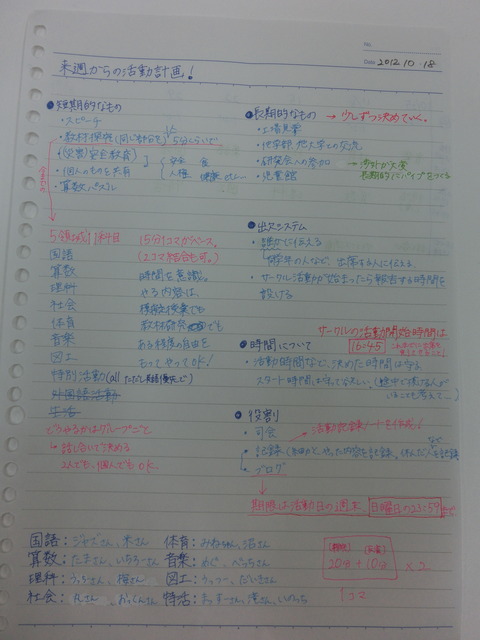 No.
Date 2012 10・18
来週からの活動計画!
●短期的なもの
・スピーチ
・教材探究(同じ部分を)5分くらいで
・(災害)安全教育
・個人のものを共有
安全 食
人権 健康
・算数パズル
●長期的なもの → 少しずつ決めていく。
・工場見学
・他学部、他大学との交流
・研究会への参加
・児童館
→渉外が大変
長期的にパイプをつくる
5領域11科目
国語
算数
理科
社会
体育
音楽
図工
特別活動(all ただし英語優先で)
外国語活動
生活
15分1コマがベース。
(2コマ結合も可。)
時間を意識。
やる内容は、
模擬授業でも
教材研究でも
ある程度自由を
もってやってOK!
どうやるかはグループごと
→話し合いで決める
2人でも、個人でもOK.
●出欠システム
・誰かに伝える
・サークル活動が始まったら報告する時間を
設ける
サークルの活動開始時間は
16:45
●時間について
・活動時間など、決めた時間は守る
●役割
・司会
→活動記録ノートを作成!
・ブログ
期限は活動日の週末 日曜日の23:59まで
国語:ジャズさん、朱さん 体育:みねちゃん、沼さん
算数:たまさん、いちろーさん 音楽:めぐ、べっちさん
理科:うっちさん、榎さん 図工:うっつー、だいきさん
社会: 特活:
20分+10分 ×2
1コマ